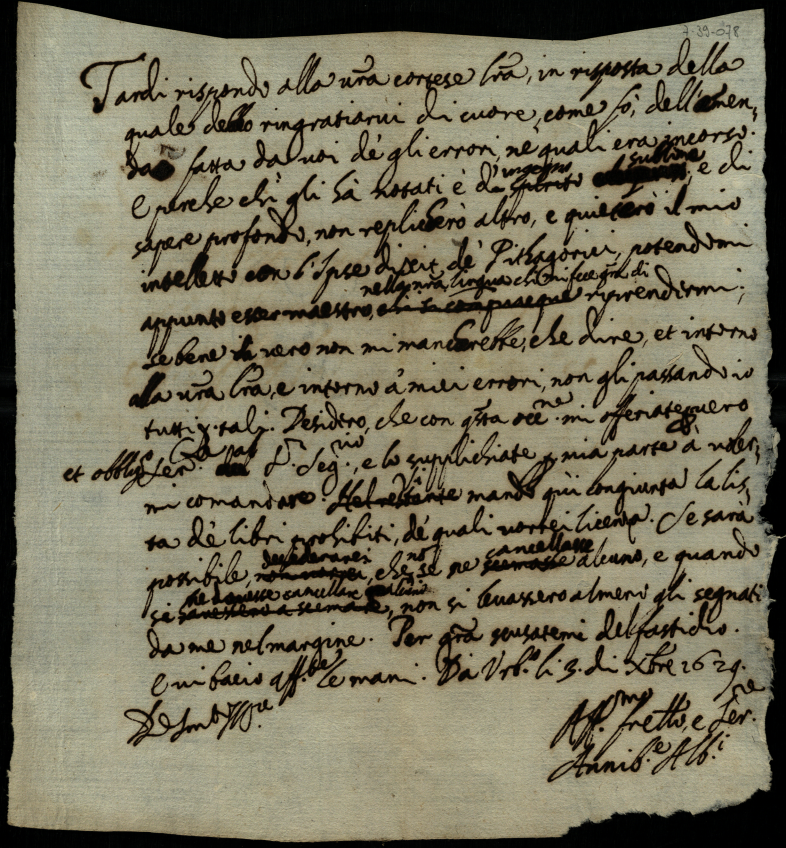 7-39-078
Tardi rispondo alla vra cortese lra, in risposta della
quale debbo ringratiarvi di cuore, come fò, dell'emen-
da fatta da voi de gli errori, ne' quali era incorso.
E perche chi gli hà notati è d'ingegno sublime, e di
sapere profondo, non replicherò altro, e quieterò il mio
intelletto con l'Ipse dixit de' Pithagorici, potendomi
nella nra lingua
appunto esser maestro, riprendermi;
se bene in vero non mi mancherebbe, che dire, et intorno
alla vra lra, e intorno à miei errori, non gli passando io
tutti p tali. Desidero, che con qsta occne. mi offeriate vero
et obblig. Ser.re al S.r Seg.rio, e lo supplichiate p mia parte à voler-
mi comandare. mando qui congiunta la lis-
ta de' libri prohibiti, de' quali vorrei licenza. Se sarà
possibile, desiderarei, che nō se ne cancellasse alcuno, e quando
se ne dovesse cancellare alcuno, non si levassero almeno gli segnati
da me nel margine. Per gra scusatemi del fastidio.
E vi bacio aff.te le mani. Da Urb.o li 3. di Xbre 1629.
Di S
Aff.mo fretto, e Ser.re
Annib.e Alb.i